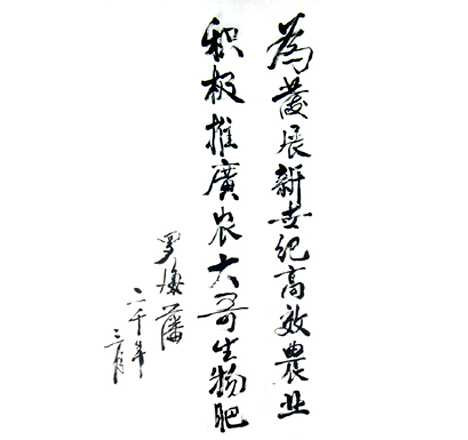 為發展新世纪高效農业
积极推廣农大哥生物肥
罗海藩
二千年
三月